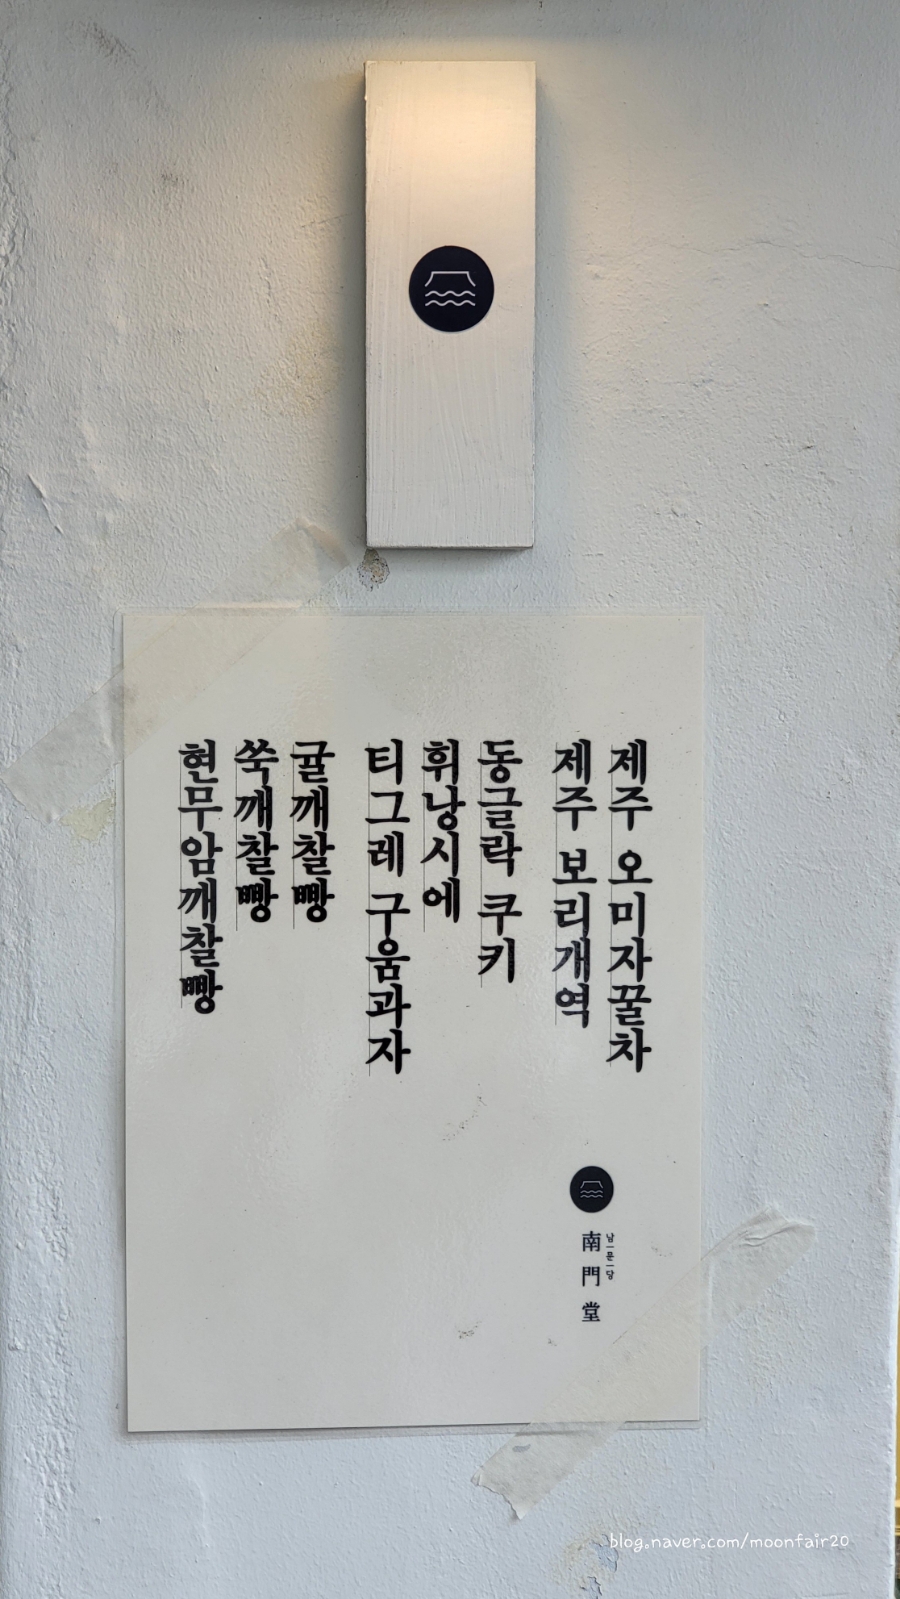 제주 오미자꿀차
제주 보리개역
동글락 쿠키
휘낭시에
티그레 구움과자
귤깨찰빵
쑥깨찰빵
현무암깨찰빵
남문당
南門堂
blog.naver.com/moonfair20